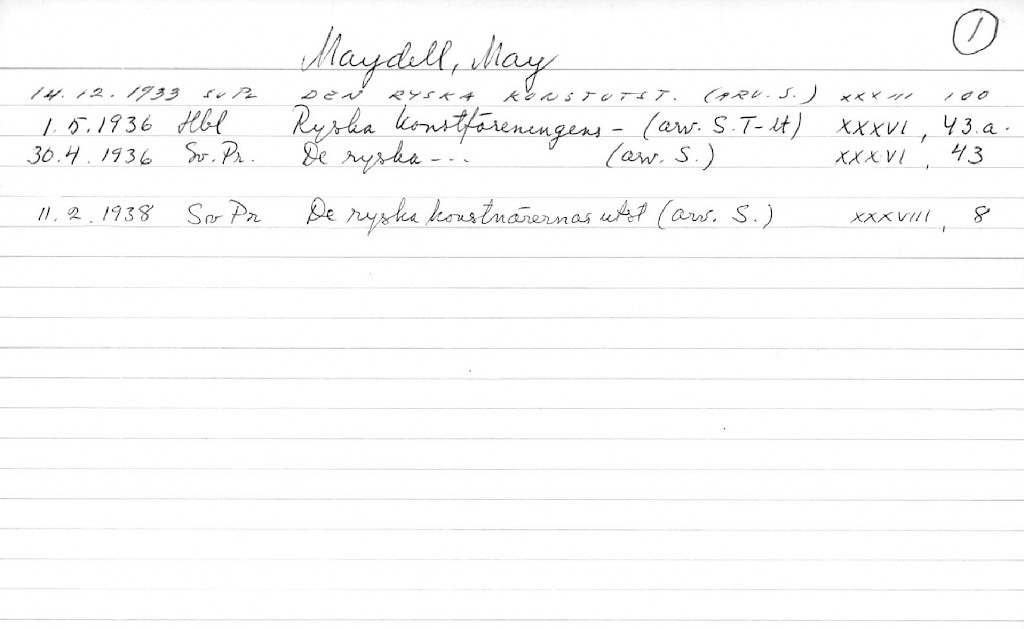 1
Maydell, May
14.12.1933 SvPr DEN RYSKA KONSTUTST. (ARV. S.) XXXIII 100
1.5.1936 Hbl Ryska konstföreningens - (arv. S.T-lt) XXXVI, 43.a.
30.4.1936 Sv.Pr. De ryska --- (arv. S.) XXXVI, 43
11.2.1938 Sv Pr De ryska konstnärernas utst (arv. S.) XXXVIII, 8